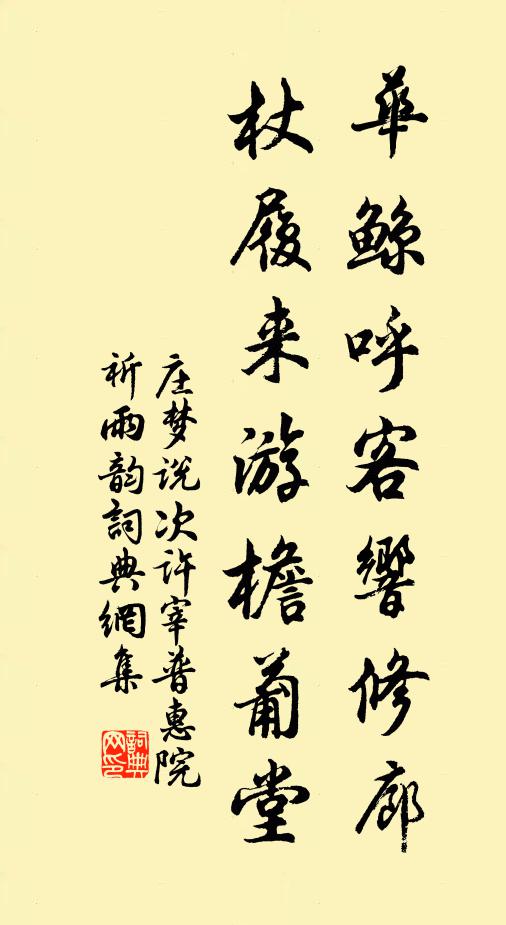 華鯨呼客響修廊
杖履来游檐葡堂
庄梦说次许宰普惠院
祈雨韵詞典網集
詞典網印